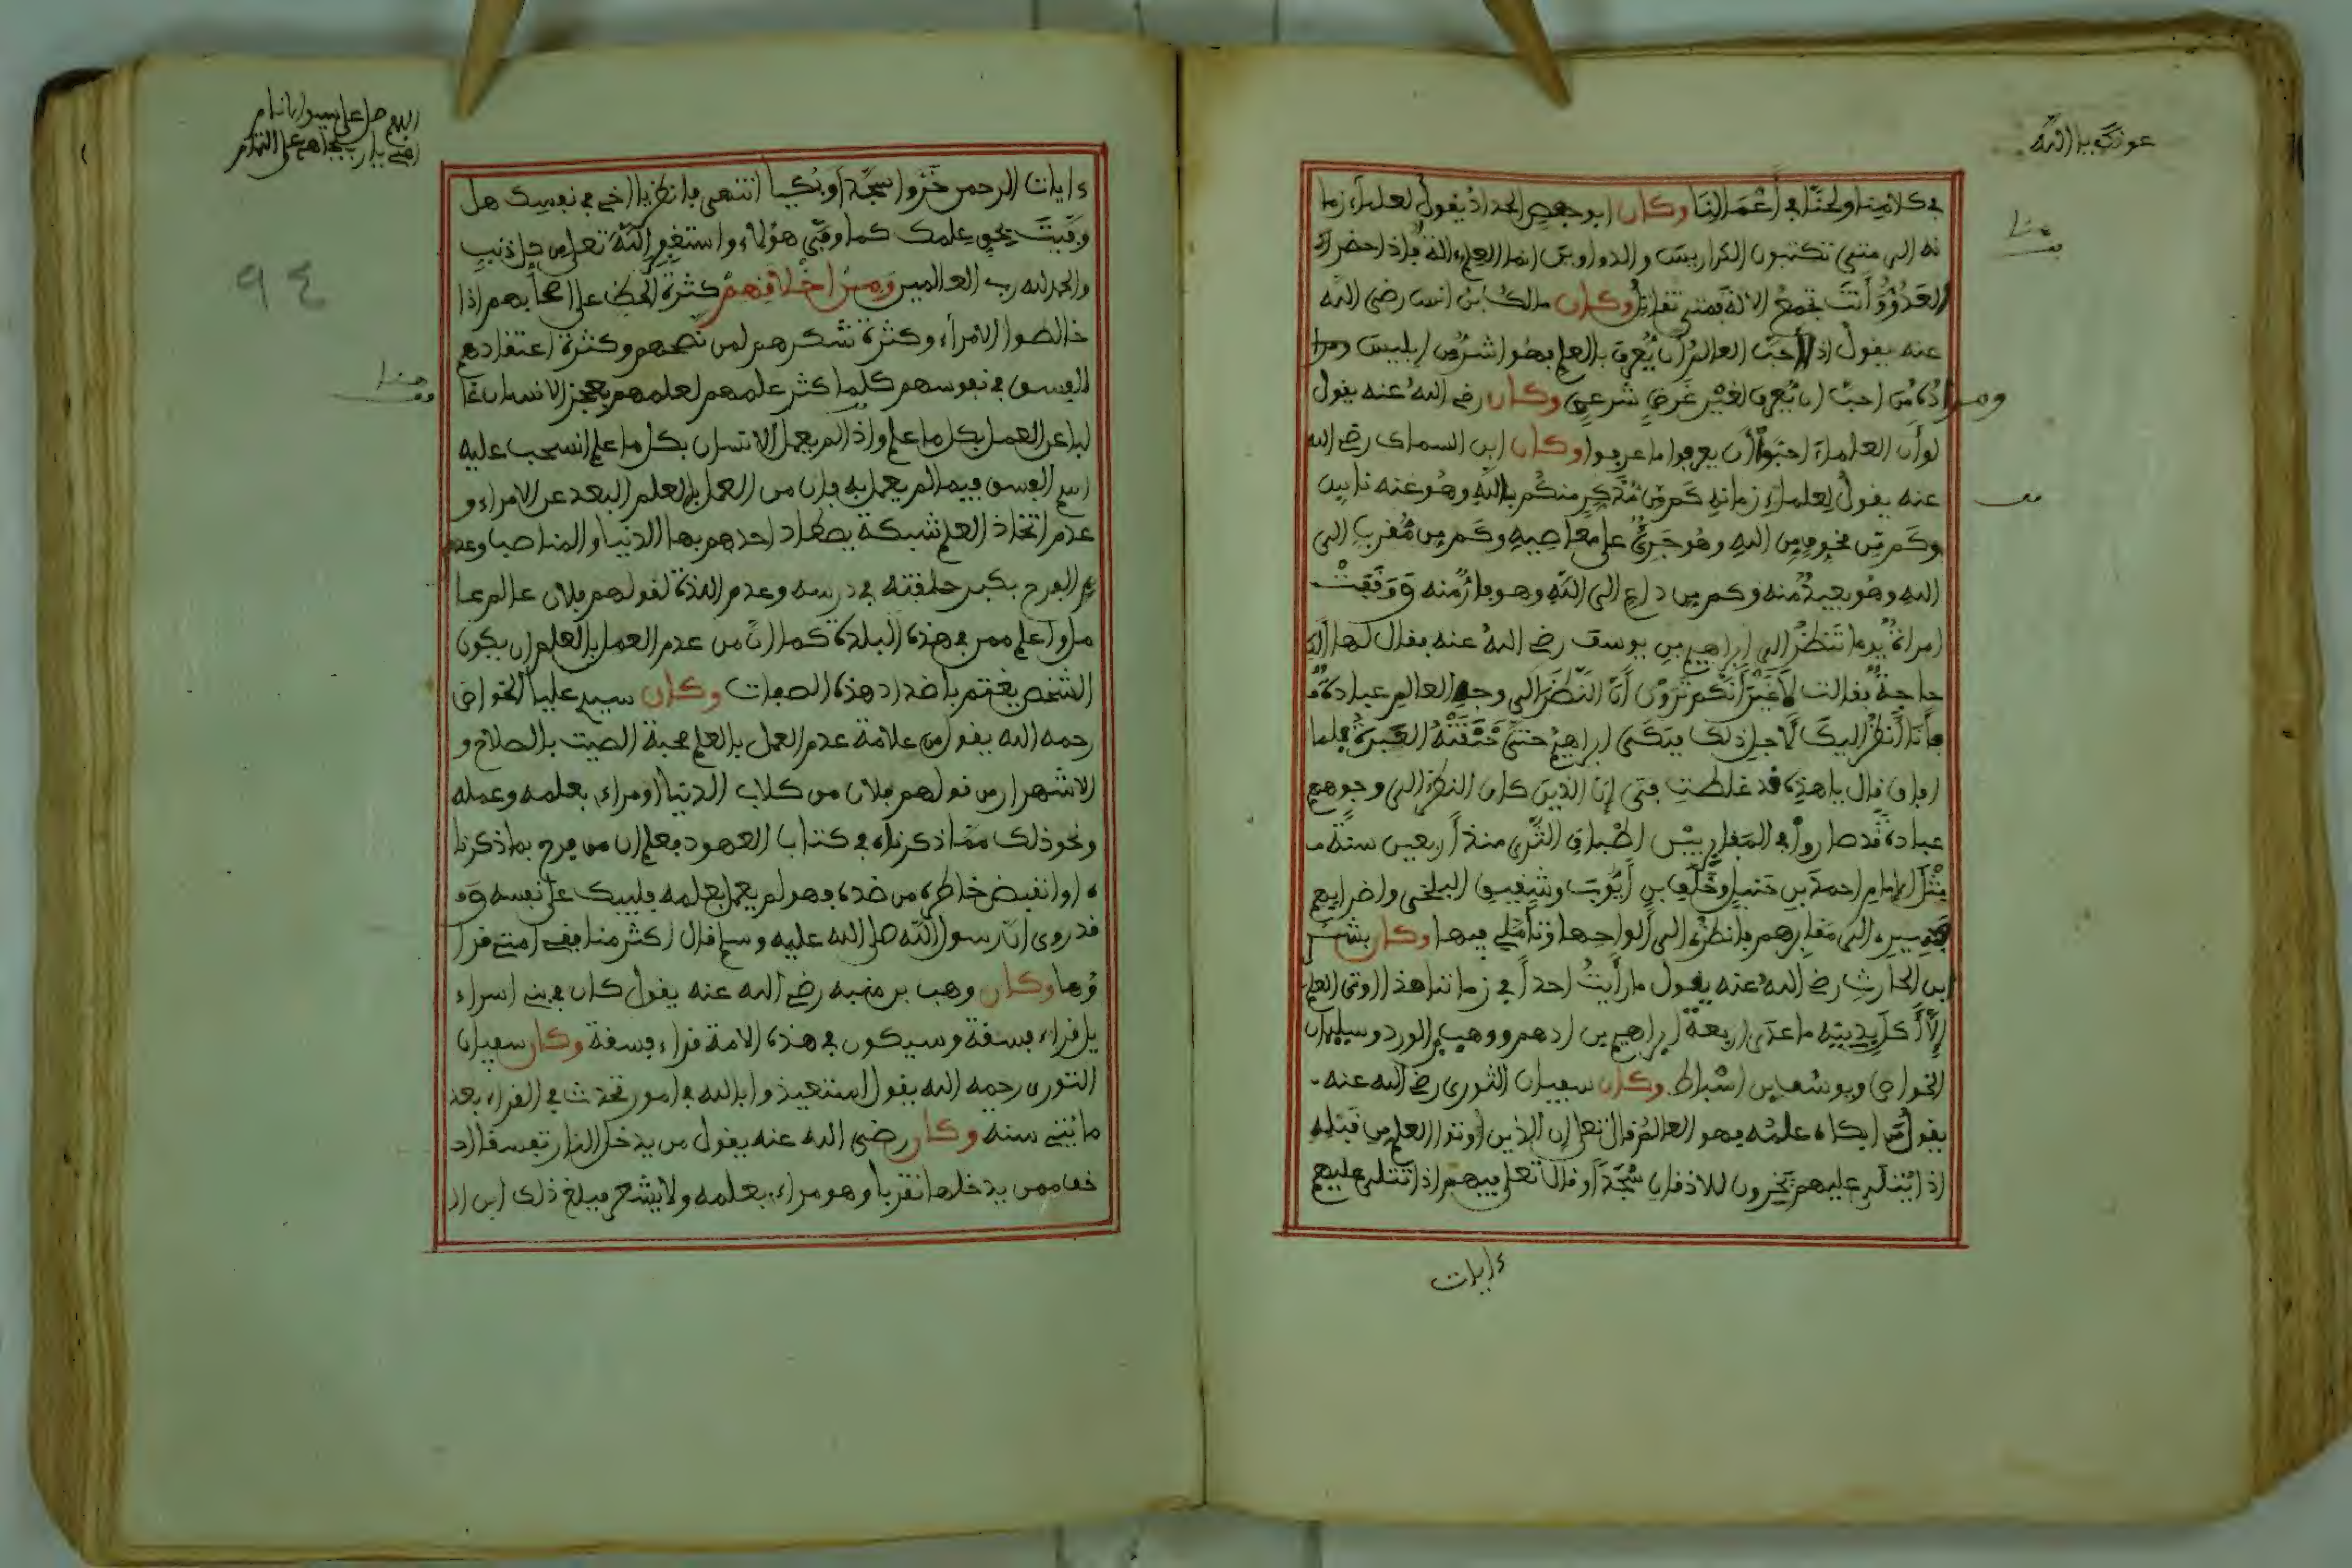 عونك يا الله
في كلامنا ولحنا في أعمالنا وكان ابو حفص الحداد يقول لعلماء زما
نه الى متى تكتبون الكراريس والدواوين انما العلم ءالة فاذا حضرك
العدو وأنت تجمع الالة فمتى تقاتل وكان مالك بن انس رضي الله
عنه يقول اذا احب العالم أن يعرف بالعلم فهو اشر من ابليس
ومراده من احب ان يعرف لغير غرض شرعي وكان رضي الله عنه يقول
لو أن العلماء احبوا أن يعرفوا ما عرفوا وكان ابن السماك رضي الله
عنه يقول لعلماء زمانه كم من مذكر منكم بالله وهو عنه ناس
وكم من مخوف من الله وهو جريء على معاصيه وكم من مقرب الى
الله وهو بعيد منه وكم من داع الى الله وهو فار منه ووقفت
امراة يوما تنظر الى ابراهيم بن يوسف رضي الله عنه فقال لها الك
حاجة فقالت لا غير أنكم تروون أن النظر الى وجه العالم عبادة
فأنا أنظر اليك لاجل ذلك فبكى ابراهيم حتى خنقته العبرة فلما
افاق قال يا هذه قد غلطت في إن الذين كان النظر الى وجوههم
عبادة قد صاروا في المقابر بين اطباق الثرى منذ أربعين سنة
مثل الامام احمد بن حنبل وخلف بن أيوب وشقيق البلخي واضرابهم
فسيري الى مقابرهم فانظري الى ألواحها وتأملي فيها وكان بشر
بن الحارث رضي الله عنه يقول ما رأيت احدا في زماننا هذا اوتي العلم
إلا أكل بدينه ما عدى اربعة ابراهيم بن ادهم ووهيب بن الورد وسليمان
الخواص ويوسف بن اسباط وكان سفيان الثوري رضي الله عنه
يقول من ابكاه علمه فهو العالم قال تعلى إن الذين اوتوا العلم من قبله
اذا يتلى عليهم يخرون للاذقان سجدا وقال تعلى فيهم اذا تتلى عليهم
ءايات
اللهم صل على سيدنا
٩٤
ءايات الرحمن خروا سجدا وبكيا انتهى فانظر يا اخي في نفسك هل
وفيت بحق علمك كما وفى هؤلاء واستغفر الله تعلى من كل ذنب
والحمد لله رب العالمين ومن اخلاقهم كثرة الحط على اصحابهم اذا
خالطوا الامراء وكثرة شكرهم لمن نصحهم وكثرة اعتقادهم
الفسق في نفوسهم كلما كثر علمهم لعلمهم بعجز الانسان غا
لبا عن العمل بكل ما علم واذا لم يعمل الانسان بكل ما علم انسحب عليه
اسم الفسق فيما لم يعمل به فان من العمل بالعلم البعد عن الامراء و
عدم اتخاذ العلم شبكة يصطاد احدهم بها الدنيا والمناصب وعد
م الفرح بكبر حلقته في درسه وعدم اللذة لقولهم فلان عالم عا
مل او أعلم ممن في هذه البلدة كما ان من عدم العمل بالعلم ان يكون
الشخص يغتم باضداد هذه الصفات وكان سيدي عليا الخواص
رحمه الله يقول من علامة عدم العمل بالعلم محبة الصيت بالصلاح و
الاشمئزاز من قولهم فلان من كلاب الدنيا او مراء بعلمه وعمله
ونحو ذلك مما ذكرناه في كتاب العهود فعلم ان من فرح بما ذكرنا
ه او انقبض خاطره من ضده فهو لم يعمل بعلمه فليبك على نفسه و
قد روى ان رسول الله صلى الله عليه وسلم قال اكثر منافقي امتي قرا
ؤها وكان وهب بن منبه رضي الله عنه يقول كان في بني اسراء
يل قراء فسقة وسيكون في هذه الامة قراء فسقة وكان سفيان
الثوري رحمه الله يقول استعيذوا بالله في امور تحدث في القراء بعد
مايتي سنة وكان رضي الله عنه يقول من يدخل النار تفسقا اد
خف ممن يدخلها تقربا وهو مراء بعلمه ولا يشعر فبلغ ذلك ابن اد